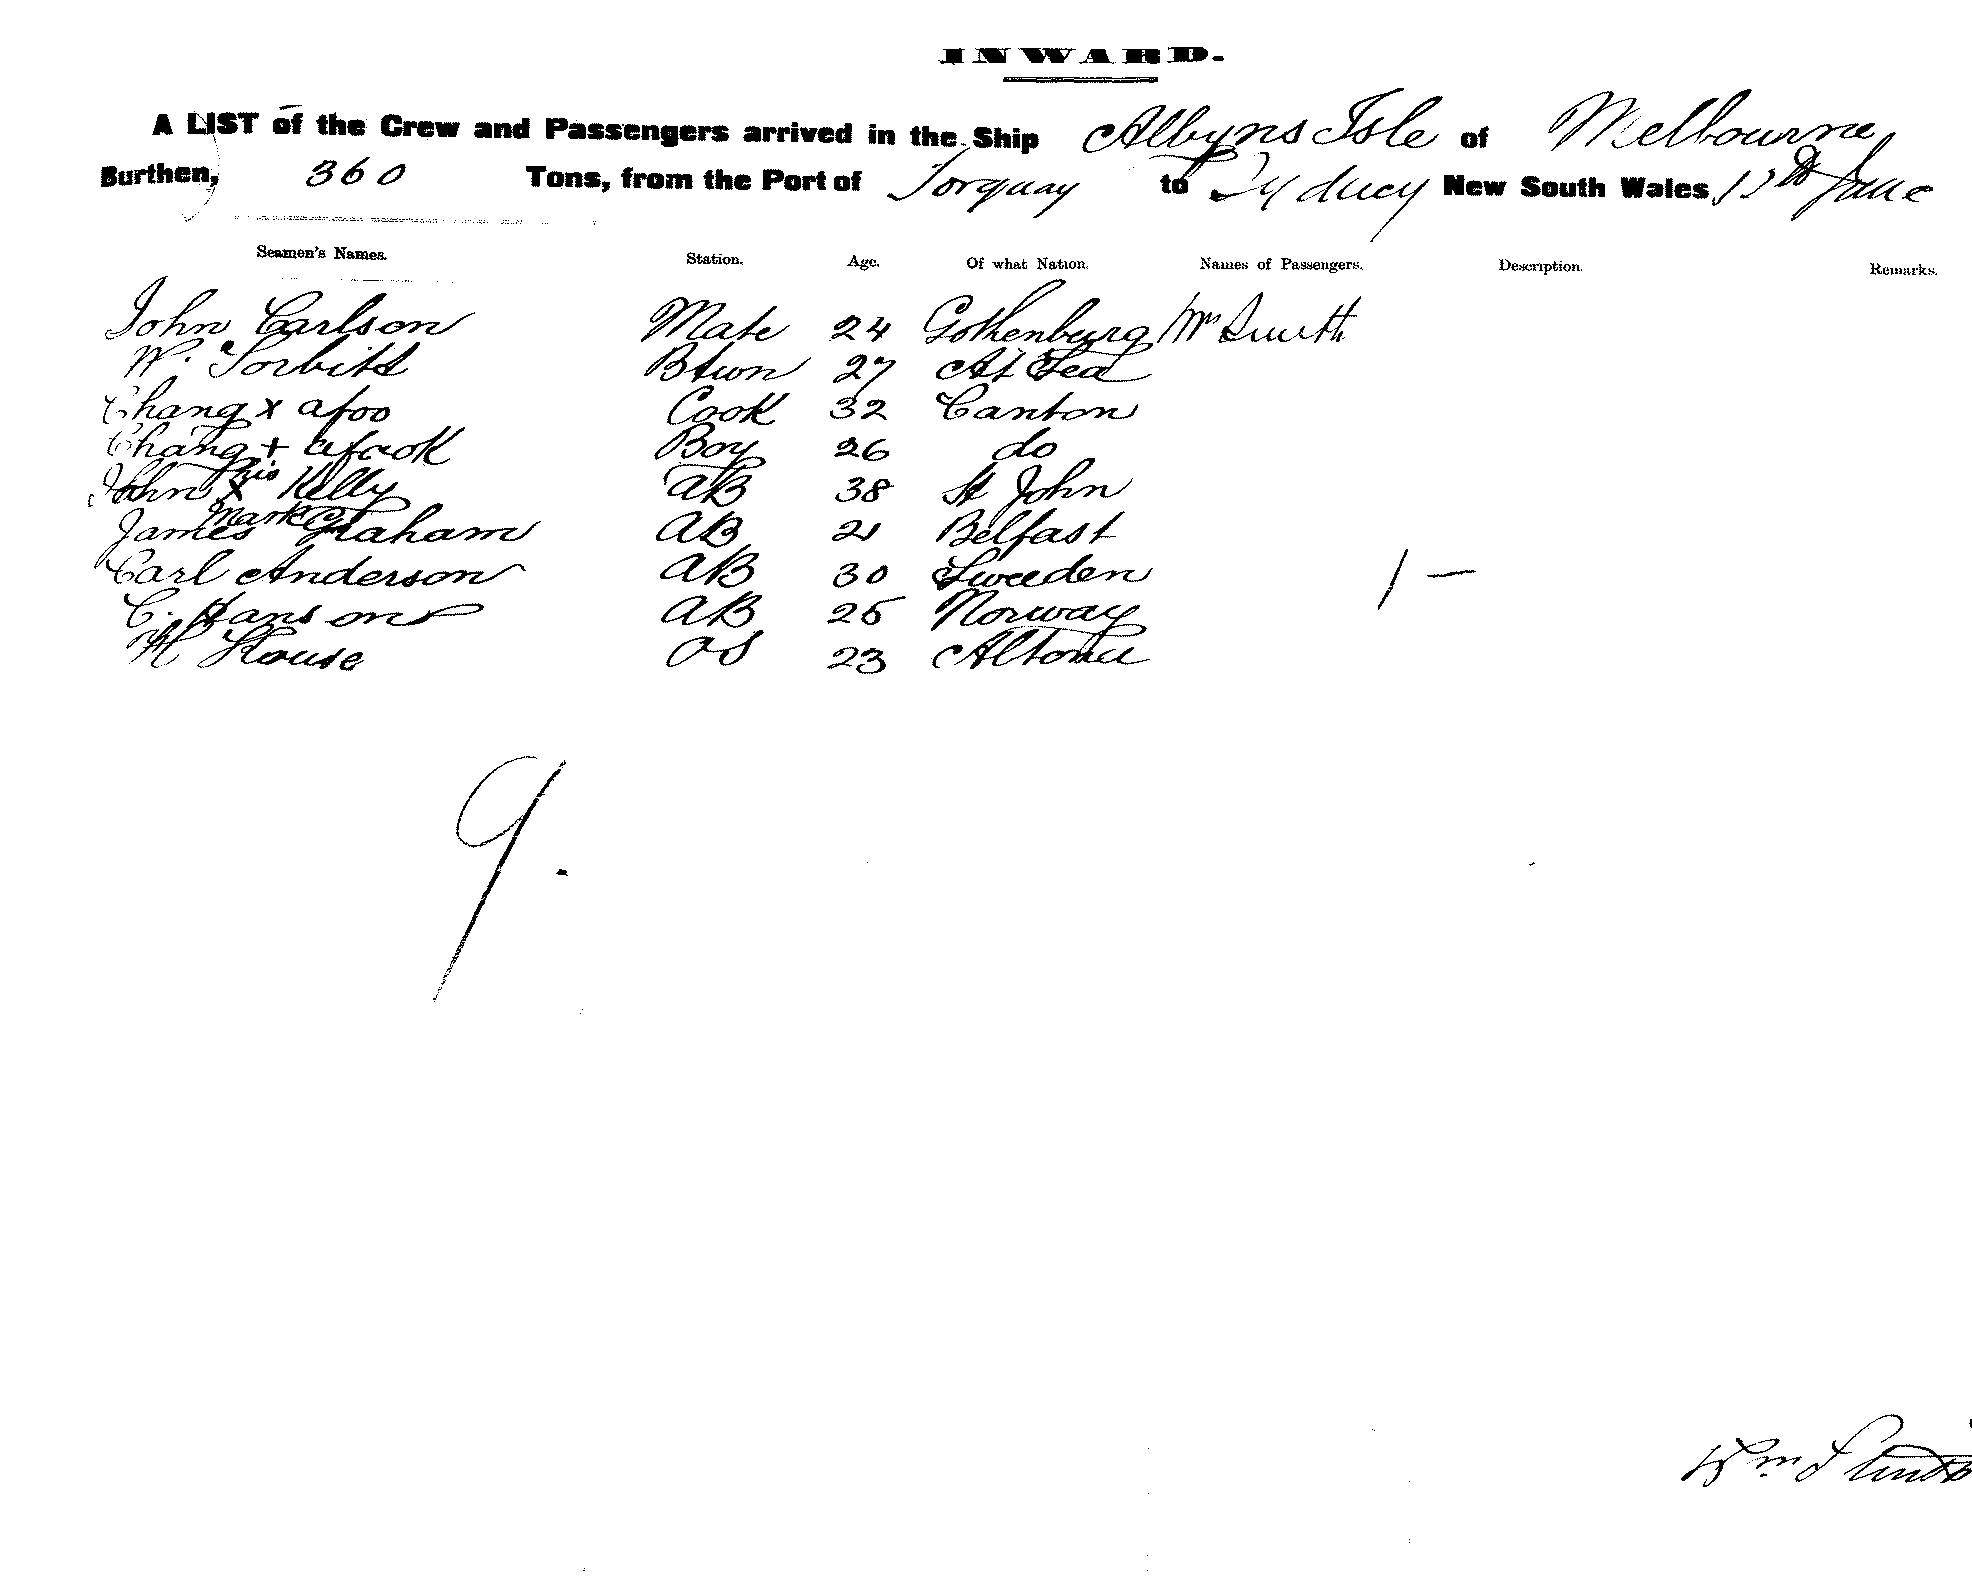 INWARD.
A LIST of the Crew and Passengers arrived in the Ship Albyns Isle of Melbourne
Burthen, 360 Tons, from the Port of Torquay to Sydney New South Wales, June
Seamen's Names. Station. Age. Of what Nation. Names of Passengers. Description. Remarks.
John Carlson Mate 24 Gothenburg Mrs Smith
W. Torbitt Btwn 27 At Sea
Chang x afoo Cook 32 Canton
Chang + afook Boy 26 do
his
John x Kelly AB 38 St John
mark
James Graham AB 21 Belfast
Carl Anderson AB 30 Sweeden 1 —
C. Hanson AB 25 Norway
H House OS 23 Altona
9.
Wm